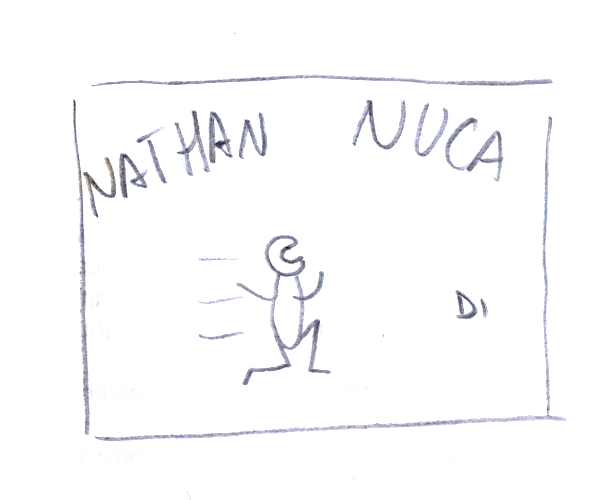 NATHAN NUCA
DI